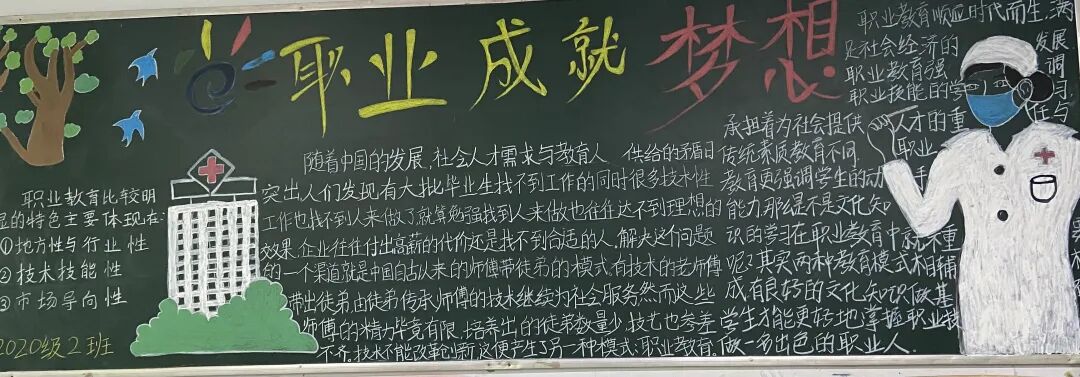 职业成就梦想
职业教育比较明
显的特色主要体现在:
①地方性与行业性
②技术技能性
③市场导向性
2020级2班
随着中国的发展,社会人才需求与教育人 供给的矛盾日
突出人们发现有大批毕业生找不到工作的同时很多技术性
工作也找不到人来做了就算勉强找到人来做也往往达不到理想的
效果.企业往往付出高薪的代价还是找不到合适的人,解决这个问题
的一个渠道就是中国自古以来的师傅带徒弟的模式:有技术的老师傅
带出徒弟,由徒弟传承师傅的技术继续为社会服务然而这些
师傅的精力毕竟有限,培养出的徒弟数量少,技艺也参差
不齐,技术不能改革创新这便产生了另一种模式:职业教育.
职业教育顺应时代而生,满
足社会经济的 发展.
职业教育强 调
职业技能的学 习,
承担着为社会提供 人才的重 任与
传统素质教育不同, 职业
教育更强调学生的动 手
能力,那是不是文化知
识的学习在职业教育中就不重
呢?其实两种教育模式相辅
成有良好的文化知识做基
学生才能更好地掌握职业技
做一名出色的职业人.